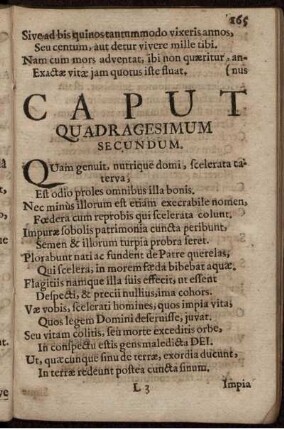 165
Sive ad bis quinos tantummodo vixeris annos,
Seu centum, aut detur vivere mille tibi.
Nam cum mors adventat, ibi non quæritur, an-
Exactæ vitæ jam quotus iste fluat. (nus
CAPUT
QUADRAGESIMUM
SECUNDUM.
QUam genuit, nutrique domi, scelerata ca-
terva,
Est odio proles omnibus illa bonis.
Nec minùs illorum est etiam execrabile nomen,
Fœdera cum reprobis qui scelerata colunt.
Impuræ sobolis patrimonia cuncta peribunt,
Semen & illorum turpia probra feret.
Plorabunt nati ac fundent de Patre querelas,
Qui scelera, in morem fœda bibebat aquæ.
Flagitiis namque illa suis effecit, ut essent
Despecti, & precii nullius, ima cohors.
Væ vobis, scelerati homines, quos impia vita,
Quos legem Domini deseruisse, juvat.
Seu vitam colitis, seu morte exceditis orbe,
In conspectu estis gens maledicta DEI.
Ut, quæcunque sinu de terræ, exordia ducunt,
In terræ redeunt postea cuncta sinum.
L 3 Impia